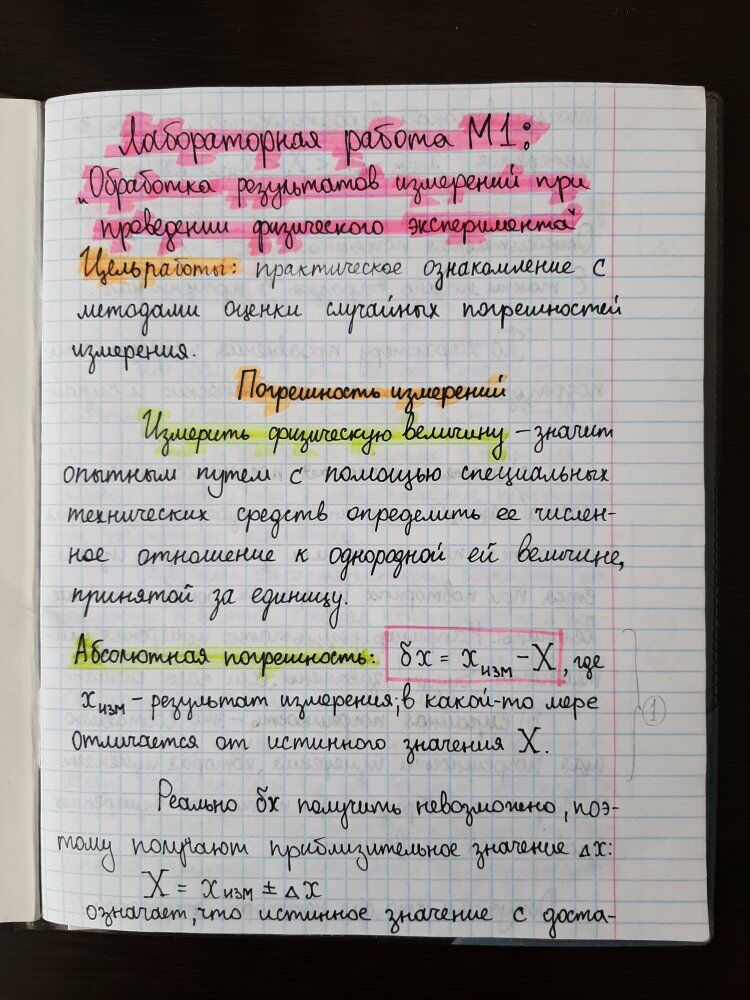 Лабораторная работа М1:
„Обработка результатов измерений при
проведении физического эксперимента"
Цель работы: практическое ознакомление с
методами оценки случайных погрешностей
измерения.
Погрешность измерений
Измерить физическую величину – значит
опытным путем с помощью специальных
технических средств определить ее числен-
ное отношение к однородной ей величине,
принятой за единицу.
Абсолютная погрешность: δx = xизм – X, где
xизм – результат измерения; в какой-то мере
отличается от истинного значения X.
1
Реально δx получить невозможно, поэ-
тому получают приблизительное значение Δx:
X = xизм ± Δx
означает, что истинное значение с доста-